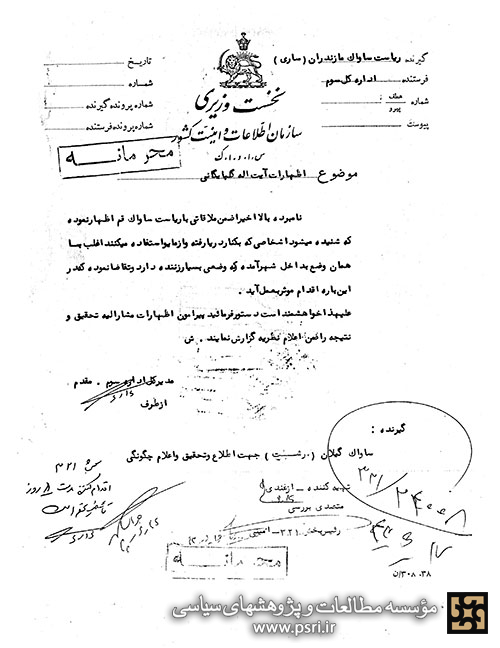 گیرنده ریاست ساواك مازندران (ساری)
فرستنده اداره کل سوم
شماره
عطف
پیرو
پیوست
تاریخ
شماره
شماره پرونده گیرنده
شماره پرونده فرستنده
نخست وزیری
سازمان اطلاعات و امنیت کشور
س.ا.و.ا.ك
محرمانه
موضوع اظهارات آیت اله گلپایگانی
نامبرده بالا اخیرا ضمن ملاقاتی با ریاست ساواك قم اظهار نموده
که شنیده میشود اشخاصی که بکنار دریا رفته و از مایو استفاده میکنند اغلب با
همان وضع بداخل شهر آمده که وضعی بسیار زننده دارد و تقاضا نموده که در
این باره اقدام موثر بعمل آید.
علیهذا خواهشمند است دستور فرمائید پیرامون اظهارات مشارالیه تحقیق و
نتیجه را ضمن اعلام نظریه گزارش نمایند. ش
مدیر کل اداره سوم. مقدم
از طرف
گیرنده:
ساواك گیلان (رشت) جهت اطلاع و تحقیق و اعلام چگونگی
تهیه کننده - ازغندی
متصدی بررسی
رئیس بخش ۳۲۱ -
۳۲۱
اقدام کنند مدت ۸ روز
محرمانه
۳۸-۳۰۸/ن
مؤسسه مطالعات و پژوهشهای سیاسی
www.psri.ir